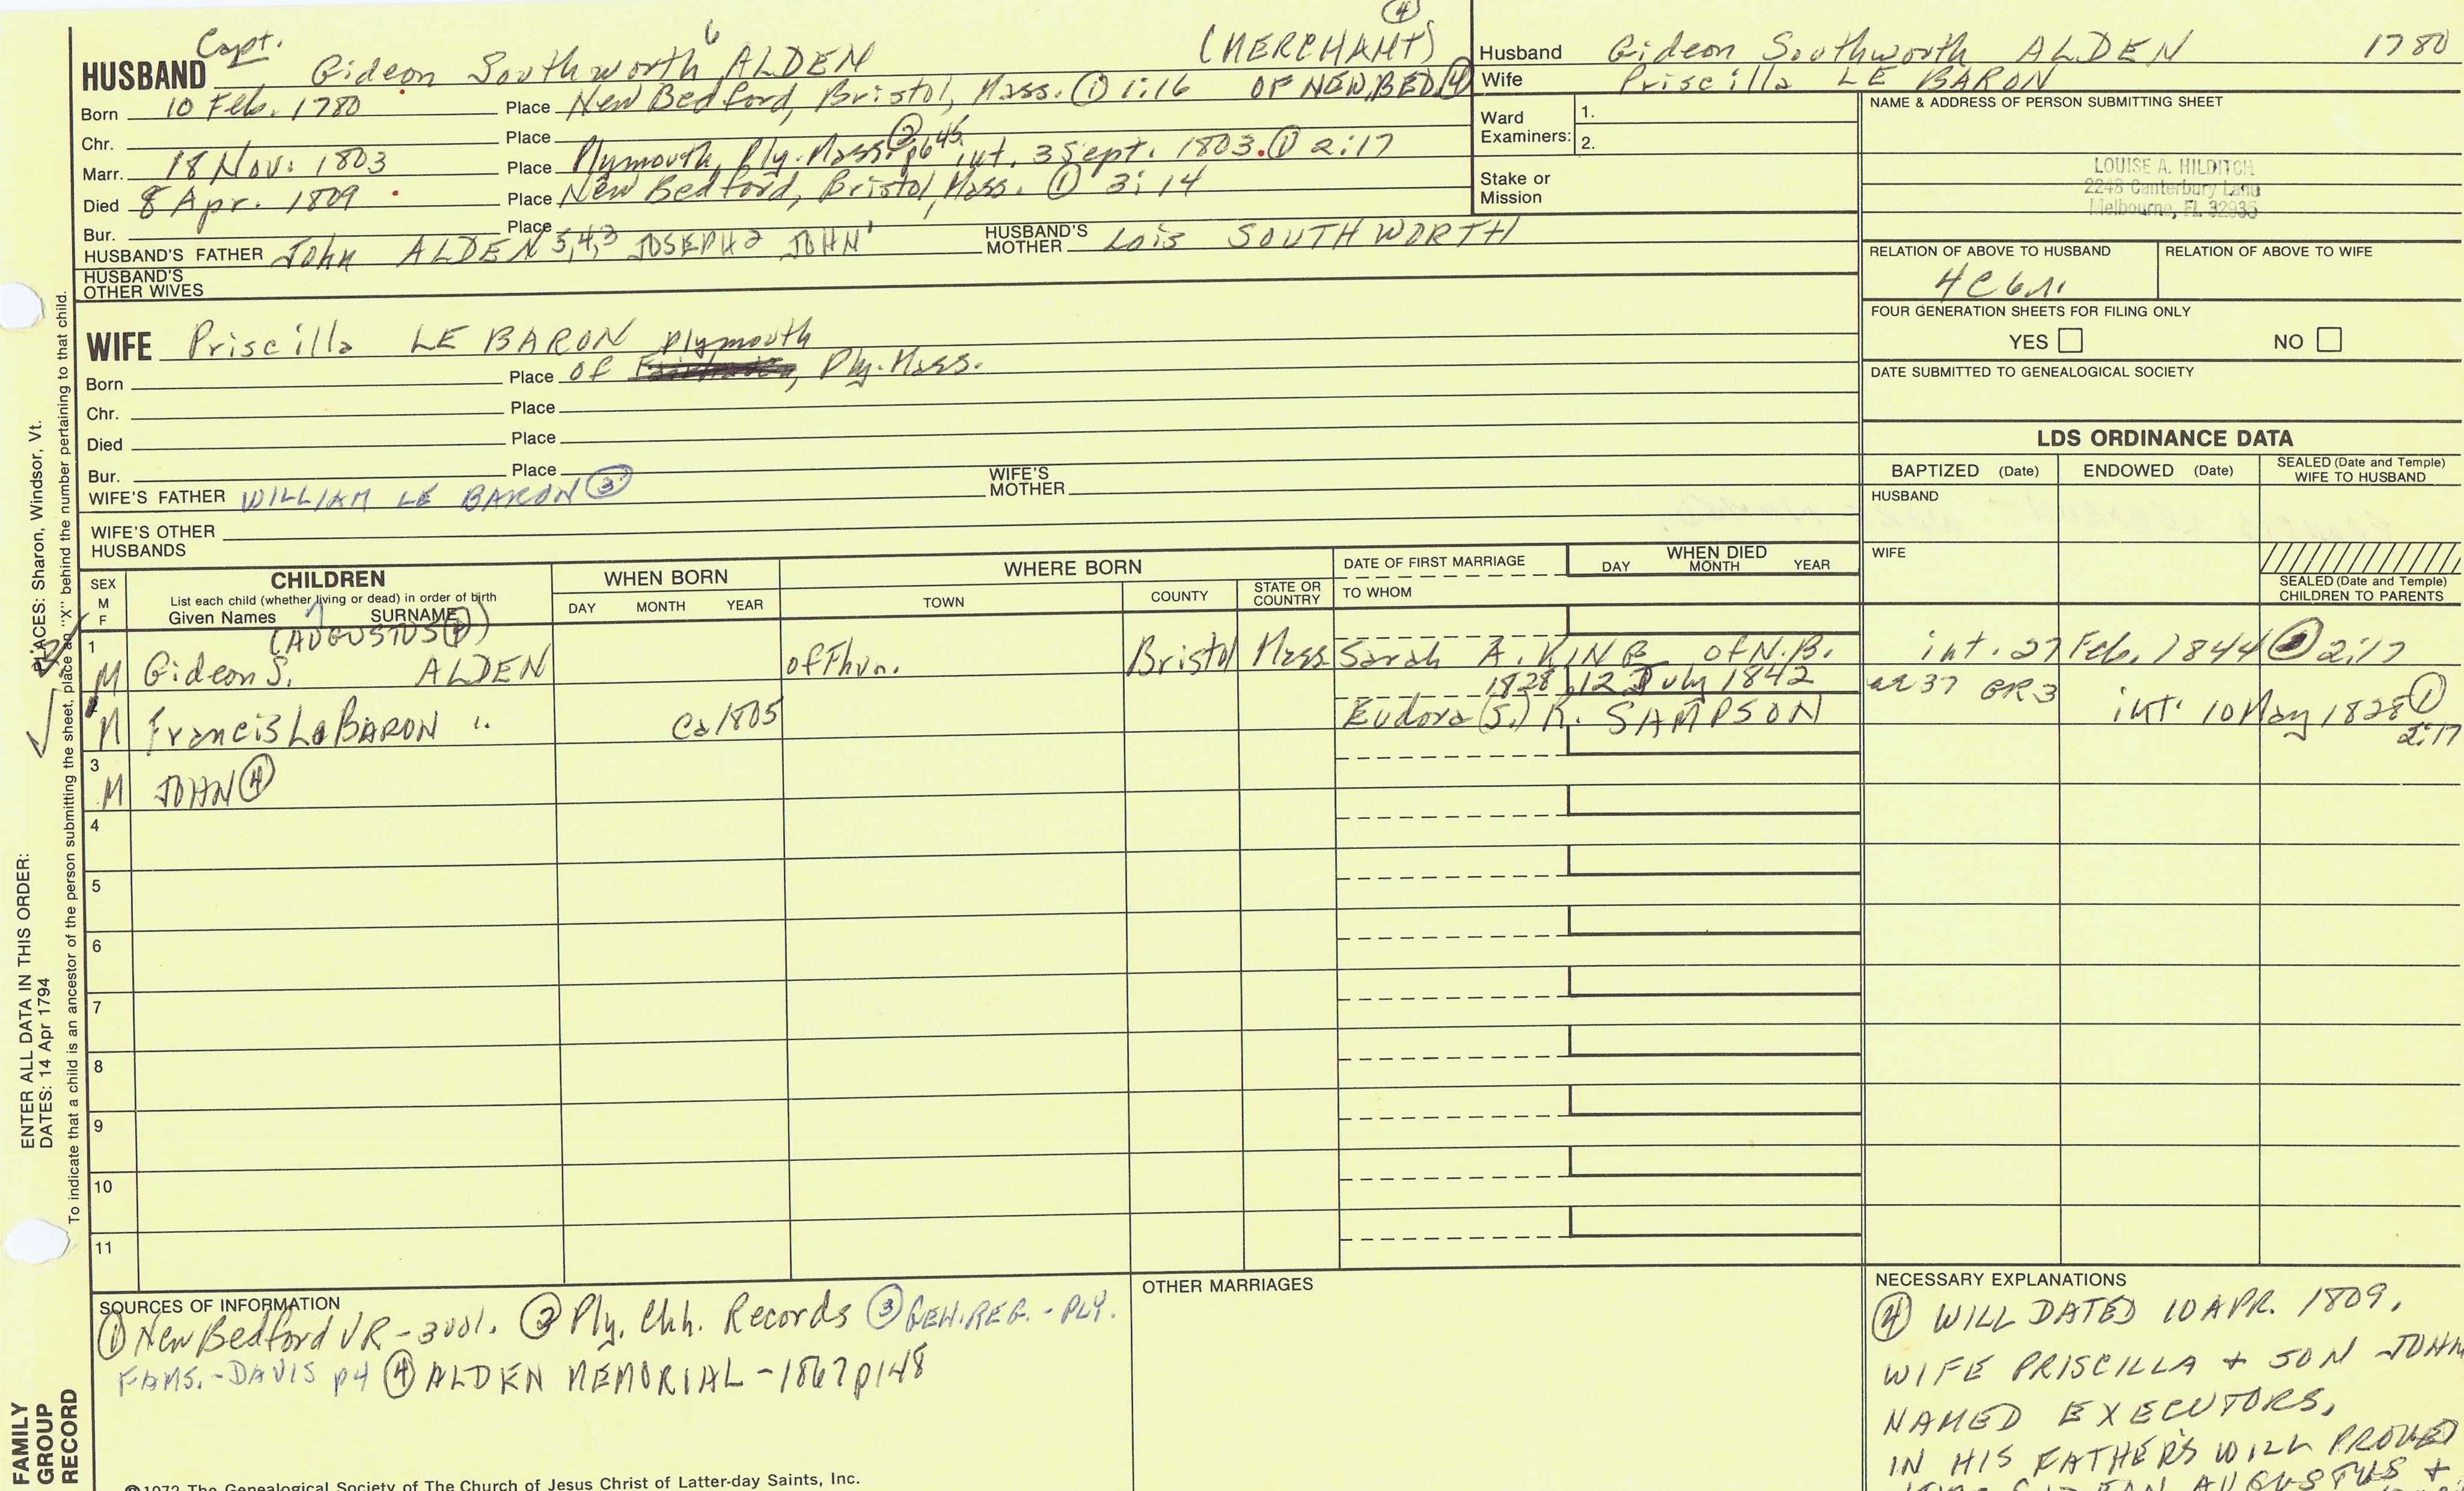 Capt. (MERCHANT) ④
HUSBAND Gideon Southworth⁶ ALDEN OF NEW BED ④
Born 10 Feb. 1780 Place New Bedford, Bristol, Mass. ① 1:16
Chr. Place
Marr. 18 Nov. 1803 Place Plymouth, Ply. Mass. ② p645 int. 3 Sept. 1803. ① 2:17
Died 8 Apr. 1809 Place New Bedford, Bristol, Mass. ① 3:14
Bur. Place
HUSBAND'S FATHER John ALDEN 5,4,3 JOSEPH 2 JOHN 1 HUSBAND'S MOTHER Lois SOUTHWORTH
HUSBAND'S OTHER WIVES
WIFE Priscilla LE BARON
Plymouth
Born Place of Ply. Mass.
Chr. Place
Died Place
Bur. Place
WIFE'S FATHER WILLIAM LE BARON ③ WIFE'S MOTHER
WIFE'S OTHER HUSBANDS
Husband Gideon Southworth ALDEN 1780
Wife Priscilla LE BARON
Ward Examiners: 1.
2.
Stake or Mission
NAME & ADDRESS OF PERSON SUBMITTING SHEET
LOUISE A. HILDITCH
2248 Canterbury Lane
Melbourne, FL 32935
RELATION OF ABOVE TO HUSBAND RELATION OF ABOVE TO WIFE
4C6r.
FOUR GENERATION SHEETS FOR FILING ONLY
YES NO
DATE SUBMITTED TO GENEALOGICAL SOCIETY
LDS ORDINANCE DATA
BAPTIZED (Date) ENDOWED (Date) SEALED (Date and Temple) WIFE TO HUSBAND
HUSBAND
WIFE
SEALED (Date and Temple) CHILDREN TO PARENTS
SEX M F
CHILDREN
List each child (whether living or dead) in order of birth
Given Names SURNAME
WHEN BORN
DAY MONTH YEAR
WHERE BORN
TOWN COUNTY STATE OR COUNTRY
DATE OF FIRST MARRIAGE
TO WHOM
WHEN DIED
DAY MONTH YEAR
(AUGUSTUS ④)
1 M Gideon S. ALDEN of Fhvn. Bristol Mass Sarah A. KING of N.B. int. 27 Feb. 1844 2:17
1828 12 July 1842 ae 37 GR3
M Francis LeBARON " Ca 1805 Eudora (S.) K. SAMPSON int. 10 May 1828 ① 2:17
3 M JOHN ④
4
5
6
7
8
9
10
11
SOURCES OF INFORMATION
① New Bedford VR - 3 vol. ② Ply. Chh. Records ③ GEN. REG. - PLY.
FAMS. - DAVIS p4 ④ ALDEN MEMORIAL - 1867 p148
OTHER MARRIAGES
NECESSARY EXPLANATIONS
④ WILL DATED 10 APR. 1809.
WIFE PRISCILLA + SON JOHN
NAMED EXECUTORS.
IN HIS FATHER'S WILL PROVED
AUGUSTUS +
©1972 The Genealogical Society of The Church of Jesus Christ of Latter-day Saints, Inc.
FAMILY
GROUP
RECORD
ENTER ALL DATA IN THIS ORDER:
DATES: 14 Apr 1794
PLACES: Sharon, Windsor, Vt.
To indicate that a child is an ancestor of the person submitting the sheet, place an "X" behind the number pertaining to that child.